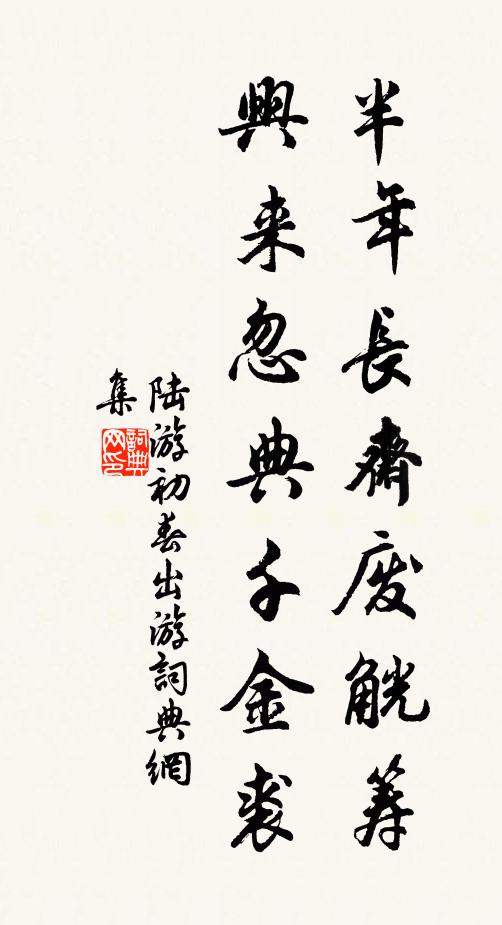 半年長齋廢觥筹
興来忽典千金裘
陆游初春出游詞典網
集
詞典网印